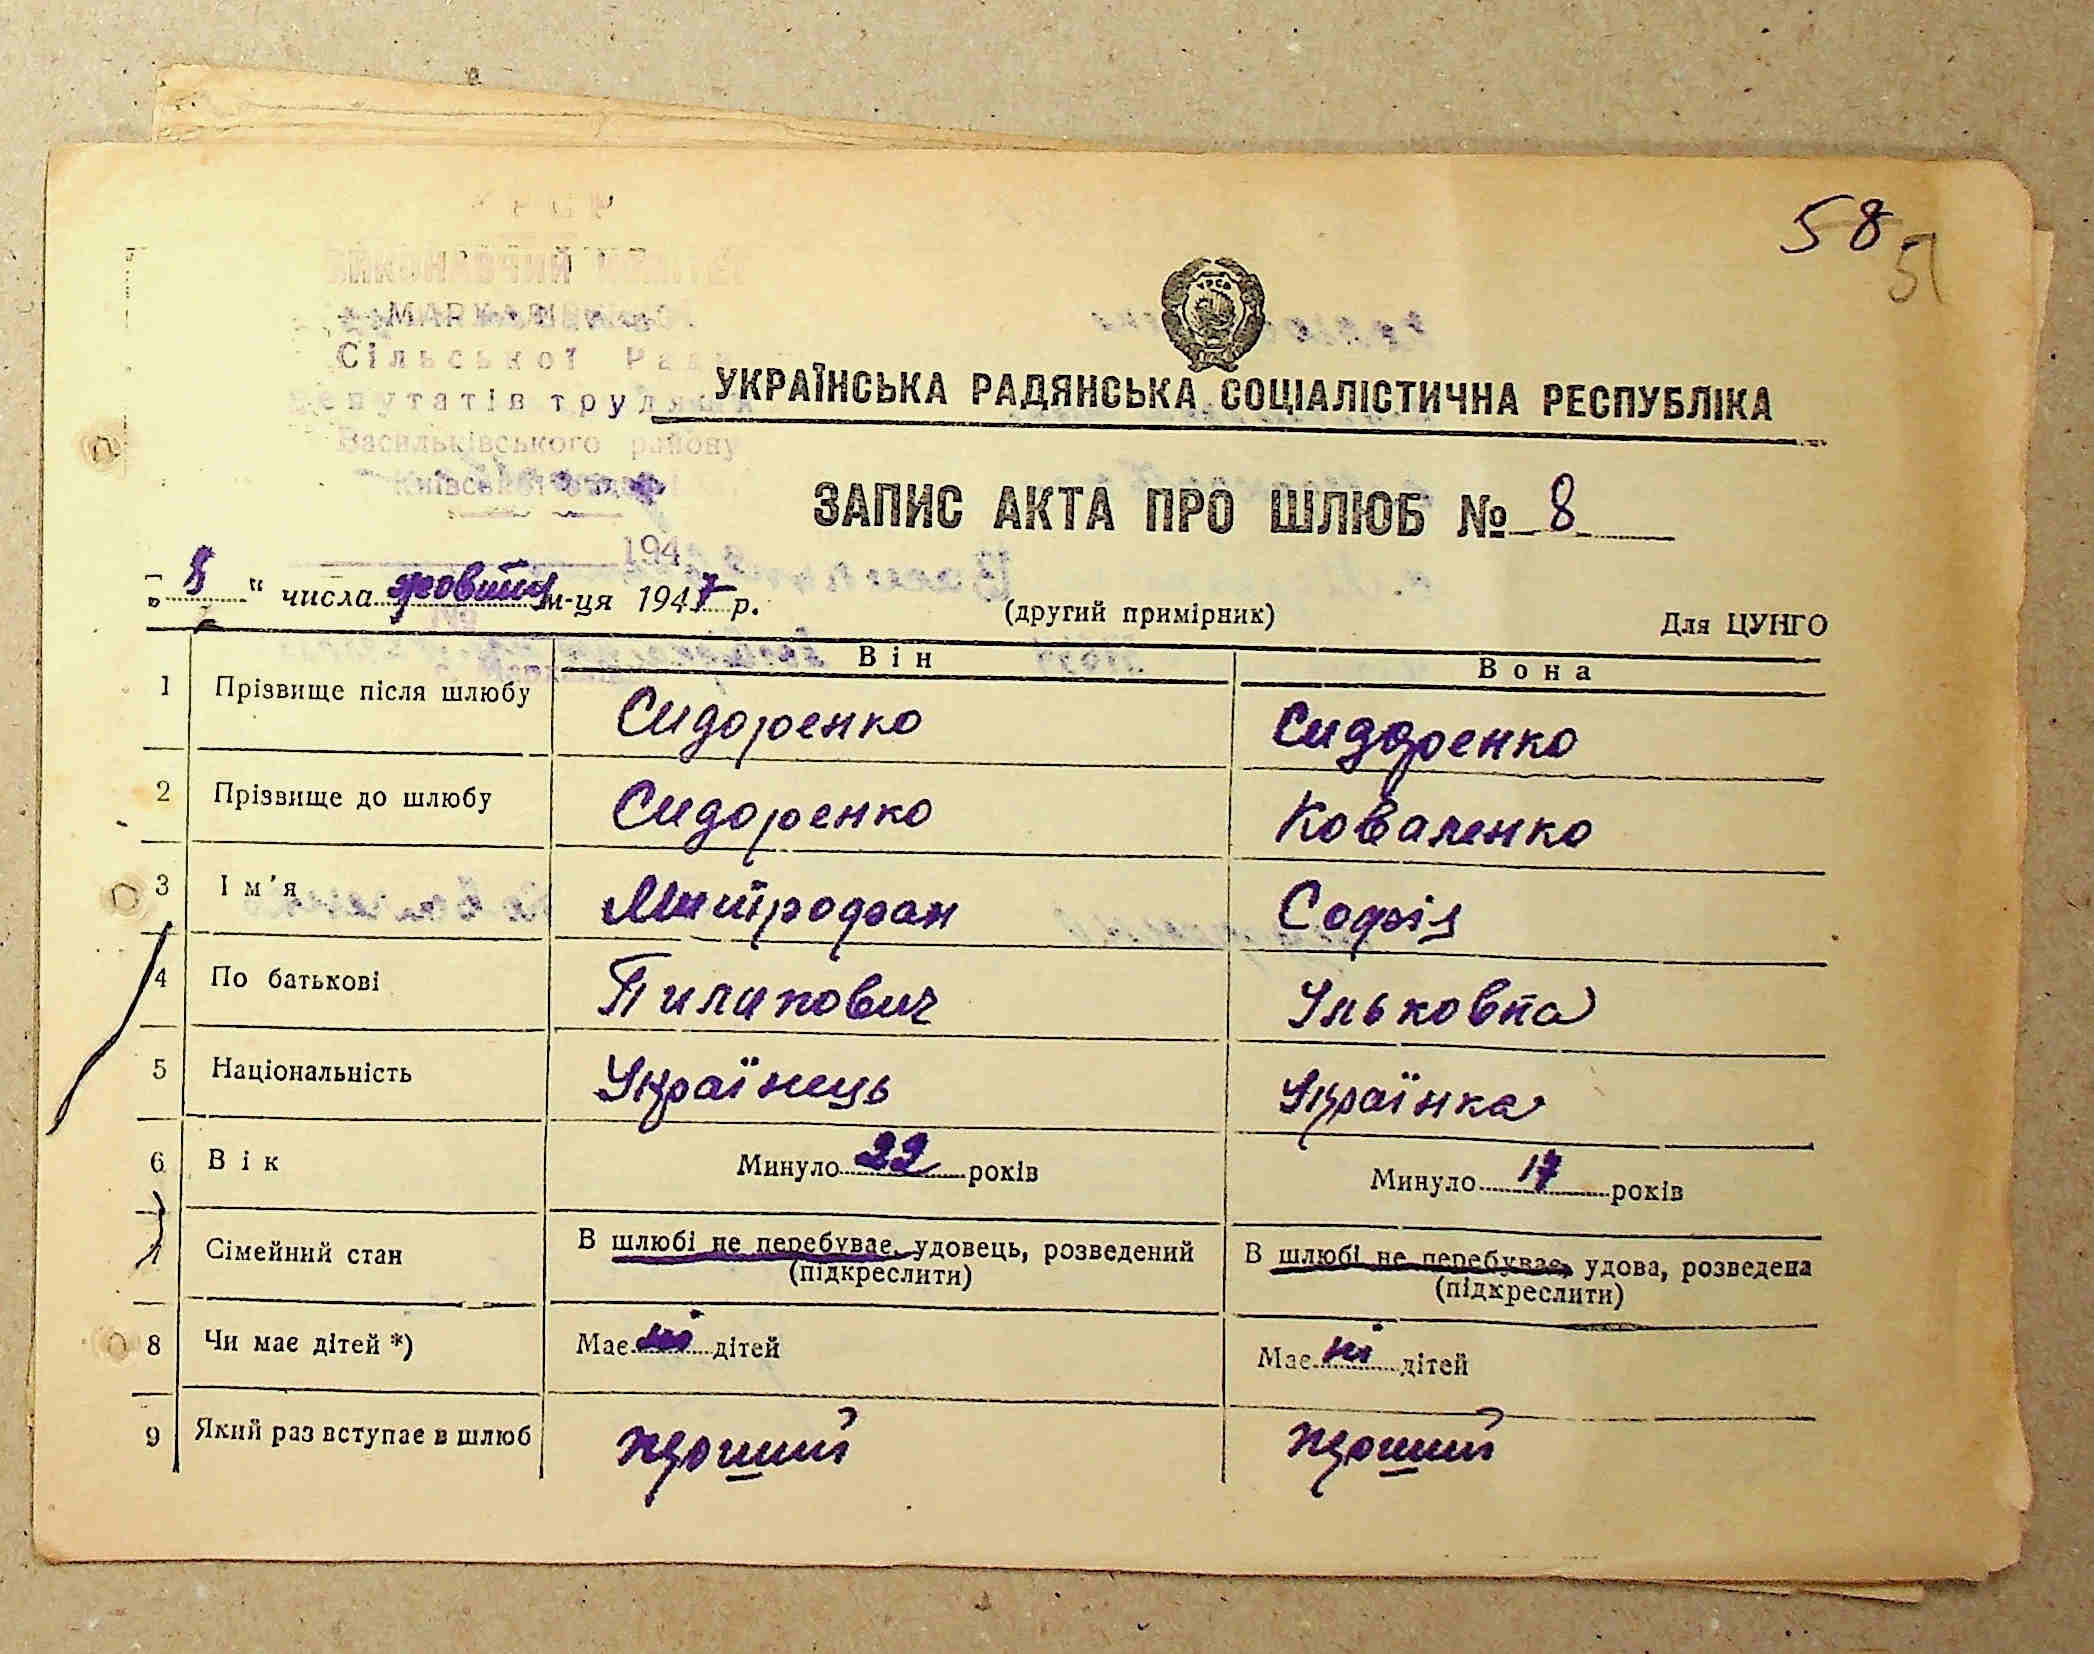 58
51
УРСР
Сільської Рад
Депутатів трудящих
Васильківського району
Київської
194
УКРАЇНСЬКА РАДЯНСЬКА СОЦІАЛІСТИЧНА РЕСПУБЛІКА
ЗАПИС АКТА ПРО ШЛЮБ № 8
„ 8 “ числа жовтня м-ця 1947 р.
(другий примірник)
Для ЦУНГО
Він Вона
1 Прізвище після шлюбу Сидоренко Сидоренко
2 Прізвище до шлюбу Сидоренко Коваленко
3 Ім'я Митрофан Софія
4 По батькові Пилипович Ільковна
5 Національність Українець Українка
6 Вік Минуло 22 років Минуло 17 років
Сімейний стан В шлюбі не перебуває, удовець, розведений В шлюбі не перебуває, удова, розведена
(підкреслити) (підкреслити)
8 Чи має дітей *) Має ні дітей Має ні дітей
9 Який раз вступає в шлюб перший перший